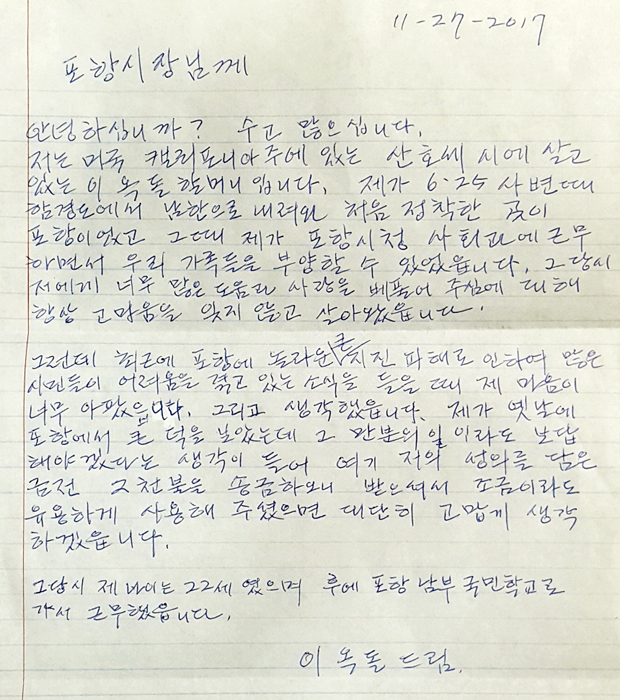 11-27-2017
포항시장님께
안녕하십니까? 수고 많으십니다.
저는 미국 캘리포니아주에 있는 산호세 시에 살고
있는 이 옥 돌 할머니 입니다. 제가 6·25 사변때
함경도에서 남한으로 내려와 처음 정착한 곳이
포항이었고 그때 제가 포항시청 사회과에 근무
하면서 우리 가족들을 부양할 수 있었읍니다. 그 당시
저에게 너무 많은 도움과 사랑을 베풀어 주심에 대해
항상 고마움을 잊지 않고 살아왔읍니다.
그런데 최근에 포항에 놀라운 큰 지진 피해로 인하여 많은
시민들이 어려움을 겪고 있는 소식을 들을 때 제 마음이
너무 아팠읍니다. 그리고 생각했읍니다. 제가 옛날에
포항에서 큰 덕을 보았는데 그 만분의 일 이라도 보답
해야겠다는 생각이 들어 여기 저의 성의를 담은
금전 2천불을 송금하오니 받으셔서 조금이라도
유용하게 사용해 주셨으면 대단히 고맙게 생각
하겠읍니다.
그당시 제 나이는 22세 였으며 후에 포항 남부 국민학교로
가서 근무했읍니다.
이 옥 돌 드림.